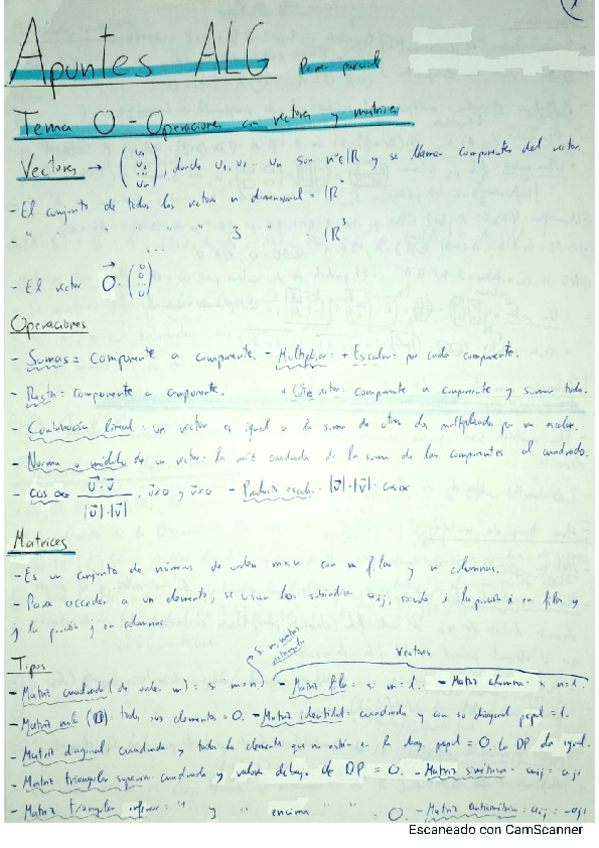 Apuntes ALG Primer parcial
Tema 0 - Operaciones con vectores y matrices
Vectores → (u₁ u₂ ... uₙ), donde u₁, u₂ ... uₙ son nº ∈ ℝ y se llaman componentes del vector.
- El conjunto de todos los vectores n dimensional = ℝ
- " " " " " 3 " = ℝ³
...
- El vector 0⃗ = (0 0 ... 0)
Operaciones
- Sumas = componente a componente. - Multiplicar: + Escalar = por cada componente.
- Resta = componente a componente. + Otro vector: componente a componente y sumar todo.
- Combinación lineal: un vector es igual a la suma de otros dos multiplicado por un escalar.
- Norma o módulo de un vector: la raíz cuadrada de la suma de las componentes al cuadrado.
- cos α = u⃗·v⃗ / |u⃗|·|v⃗|, - Producto escalar = |u⃗|·|v⃗|·cos α
Matrices
- Es un conjunto de números de orden m×n con m filas y n columnas.
- Para acceder a un elemento, se usan los subíndices aij, siendo i la posición i en filas y
j la posición j en columnas.
Tipos
Si no, matriz rectangular
Vectores
- Matriz cuadrada (de orden m) = si m=n - Matriz fila = si m=1. - Matriz columna = si n=1.
- Matriz nula (0): todos sus elementos = 0. - Matriz identidad = cuadrada y con su diagonal ppal = 1.
- Matriz diagonal: cuadrada y todos los elementos que no estén en la diag. ppal = 0. La DP da igual.
- Matriz triangular superior: cuadrada y valores debajo de DP = 0. - Matriz simétrica = aij = aji
- Matriz triangular inferior = " y " encima " " = 0. - Matriz antisimétrica = aij = -aji
Escaneado con CamScanner